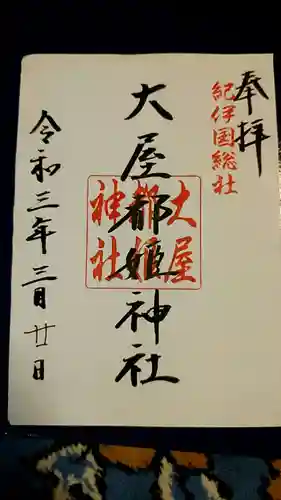 奉拝
紀伊国総社
大屋都姫神社
大屋
都姫
神社
令和三年三月廿日